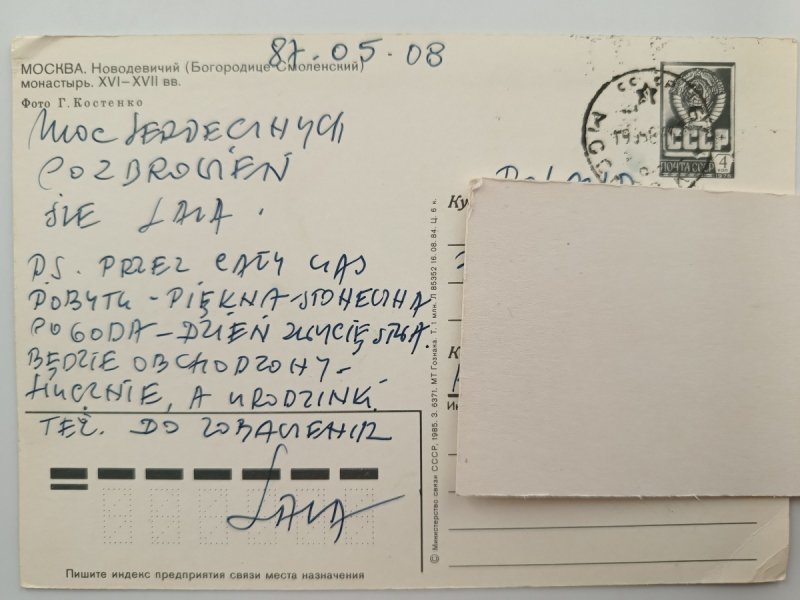 87.05.08
МОСКВА. Новодевичий (Богородице-Смоленский)
монастырь. XVI–XVII вв.
Фото Г. Костенко
MOC SERDECZNYCH
POZDROWIEŃ
ŚLE LALA.
PS. PRZEZ CAŁY CZAS
POBYTU - PIĘKNA - SŁONECZNA
POGODA - DZIEŃ ZWYCIĘSTWA.
BĘDZIE OBCHODZONY -
HUCZNIE, A URODZINKI
TEŻ. DO ZOBACZENIA
LALA
Пишите индекс предприятия связи места назначения
СССР
ПОЧТА СССР
4
Ку
К
Ин
© Министерство связи СССР, 1985. З. 6371. МТ Гознака. Т. 1 млн. Л 85352 16.08.84. Ц. 6 к.